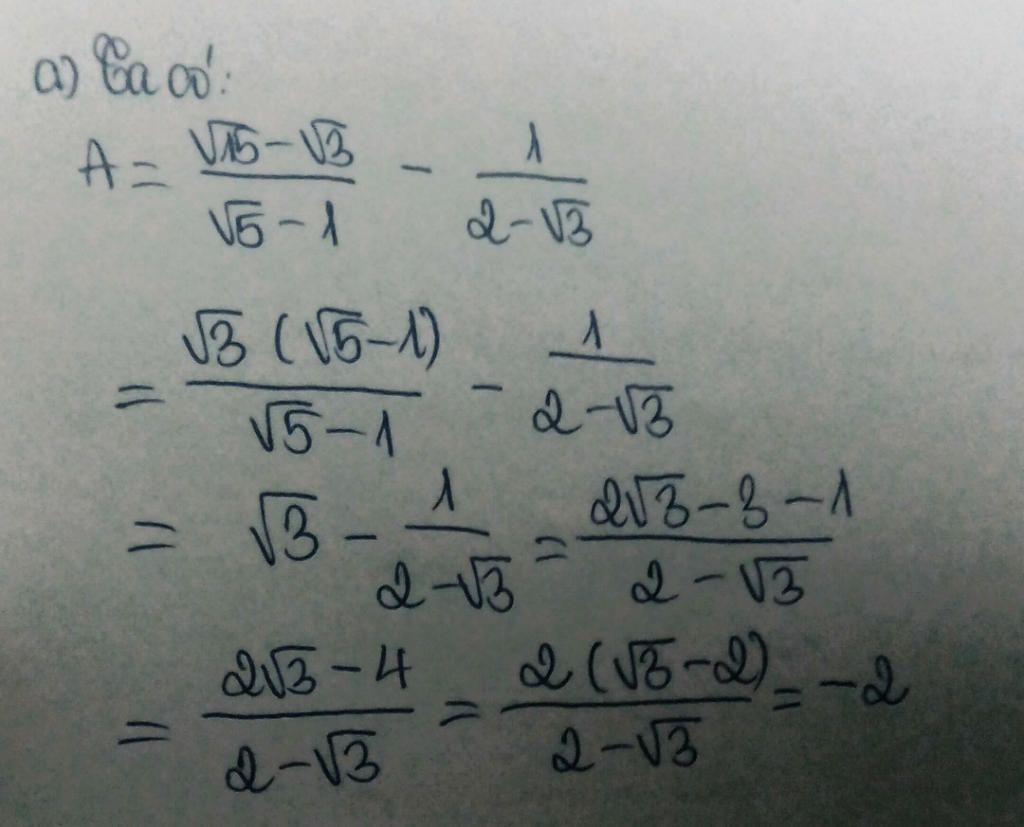 a) Ta có:
A = \frac{\sqrt{15}-\sqrt{3}}{\sqrt{5}-1} - \frac{1}{2-\sqrt{3}}
= \frac{\sqrt{3}(\sqrt{5}-1)}{\sqrt{5}-1} - \frac{1}{2-\sqrt{3}}
= \sqrt{3} - \frac{1}{2-\sqrt{3}} = \frac{2\sqrt{3}-3-1}{2-\sqrt{3}}
= \frac{2\sqrt{3}-4}{2-\sqrt{3}} = \frac{2(\sqrt{3}-2)}{2-\sqrt{3}} = -2